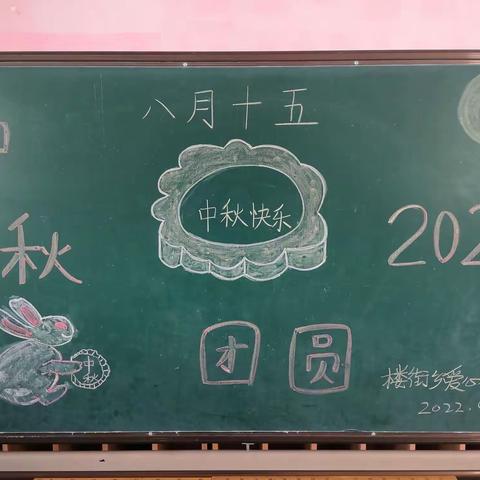 八月十五
中秋快乐
秋
202
团 圆
中秋
楼街乡爱心
2022.